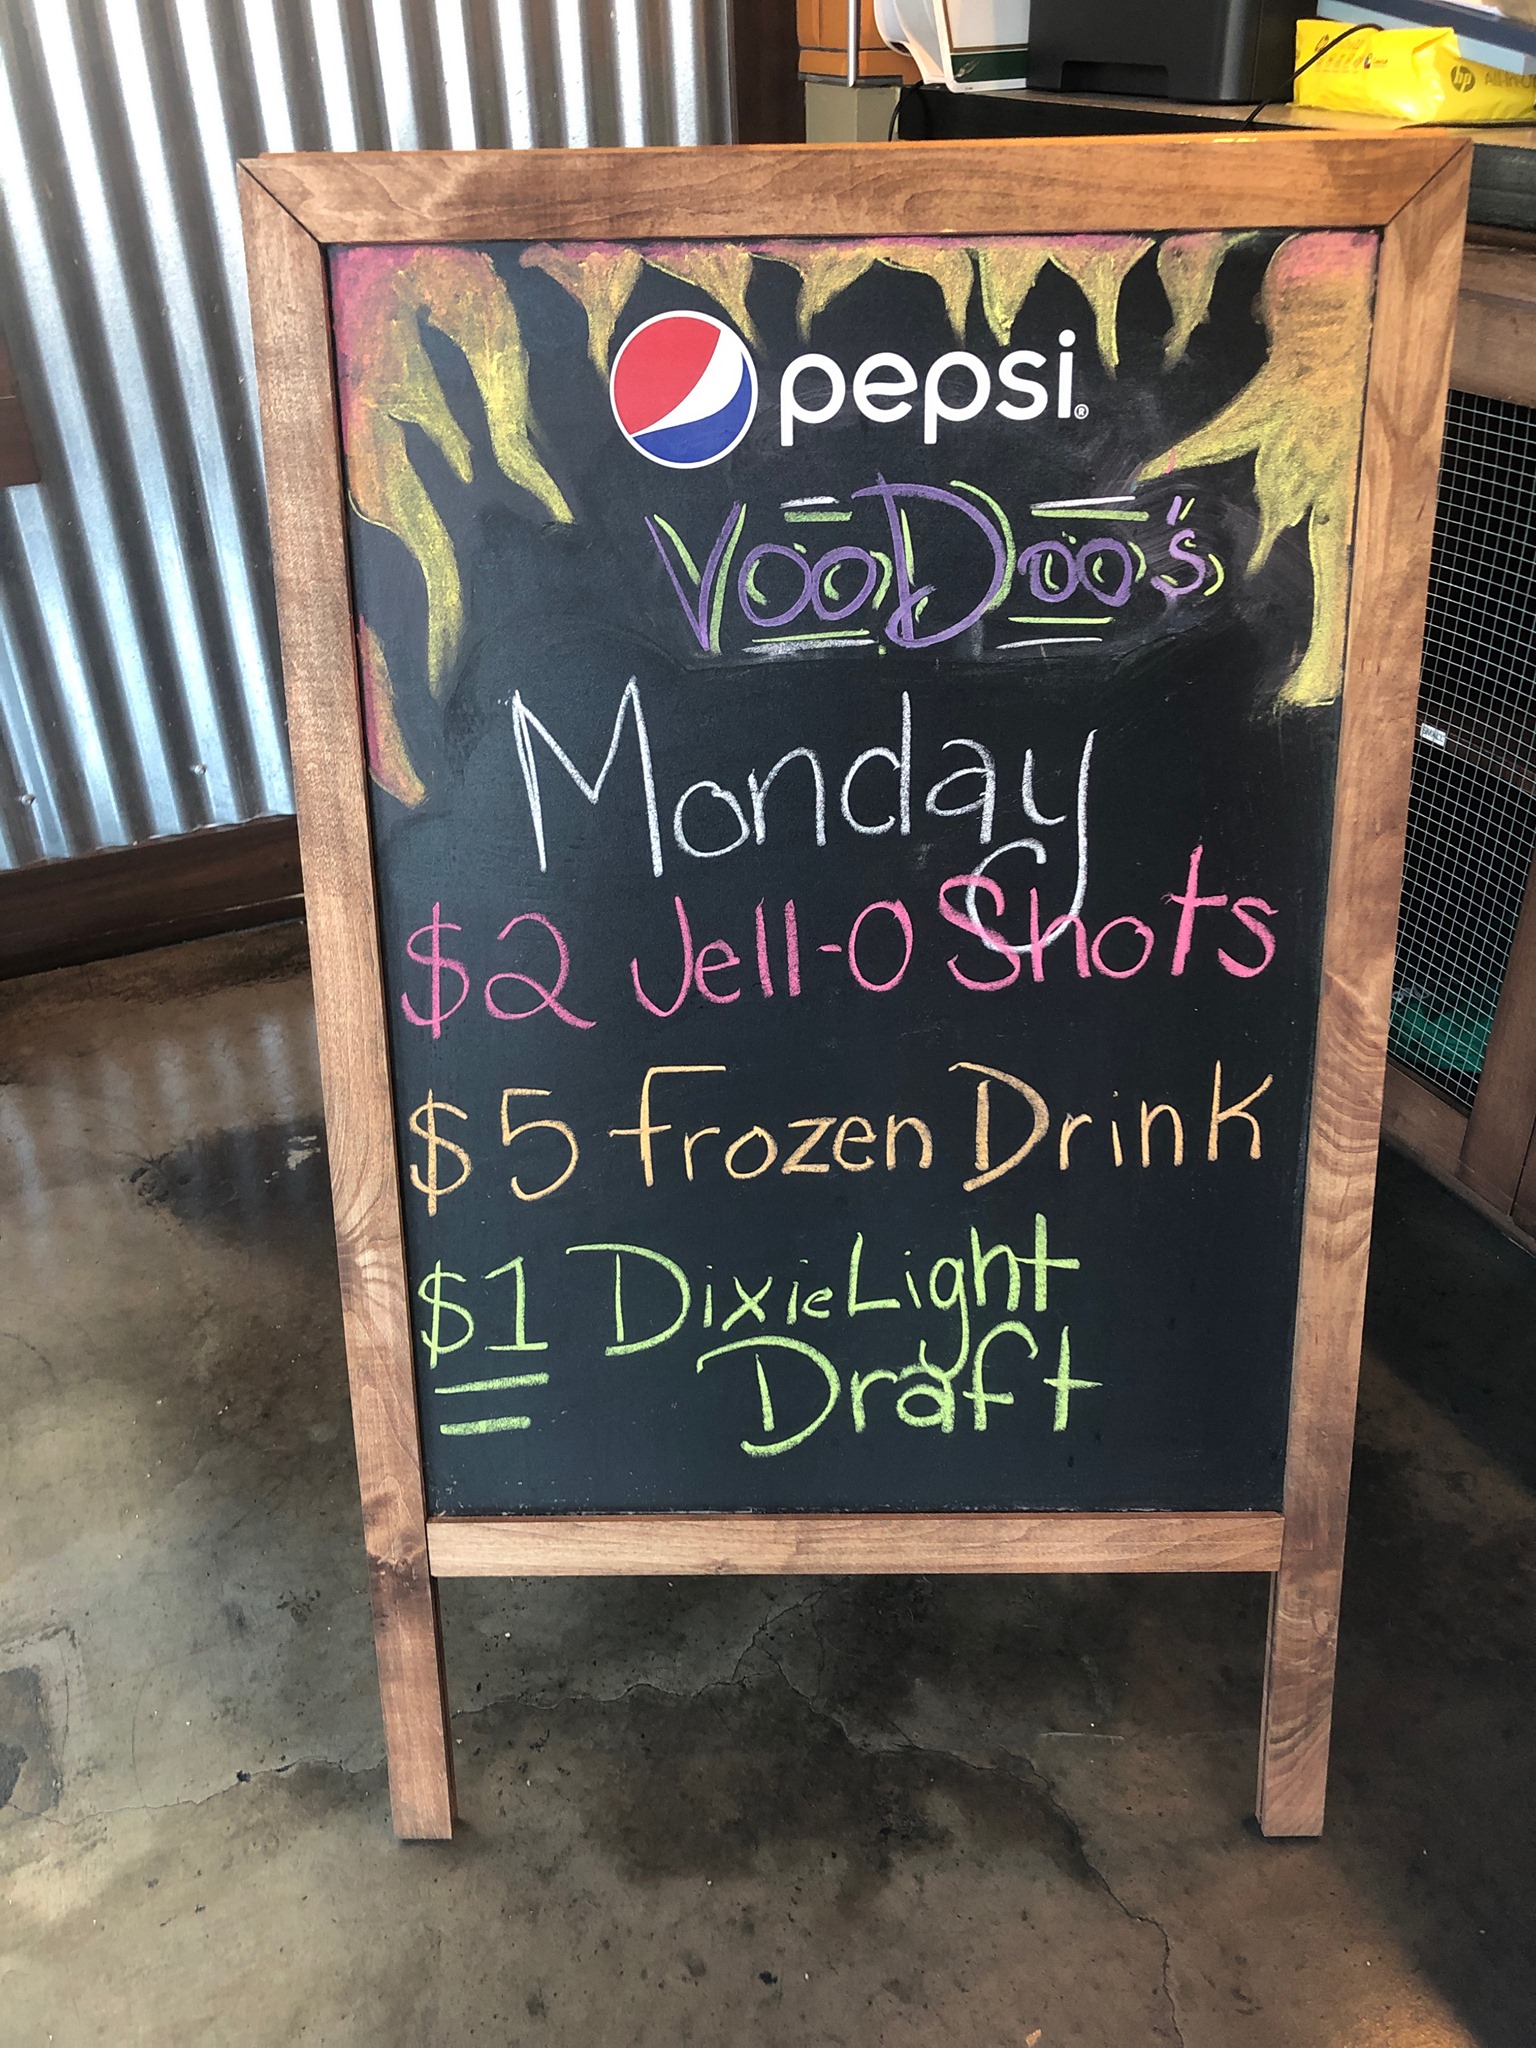 hp All-in-O
pepsi®
VooDoo's
Monday
$2 Jell-O Shots
$5 Frozen Drink
$1 DixieLight
Draft